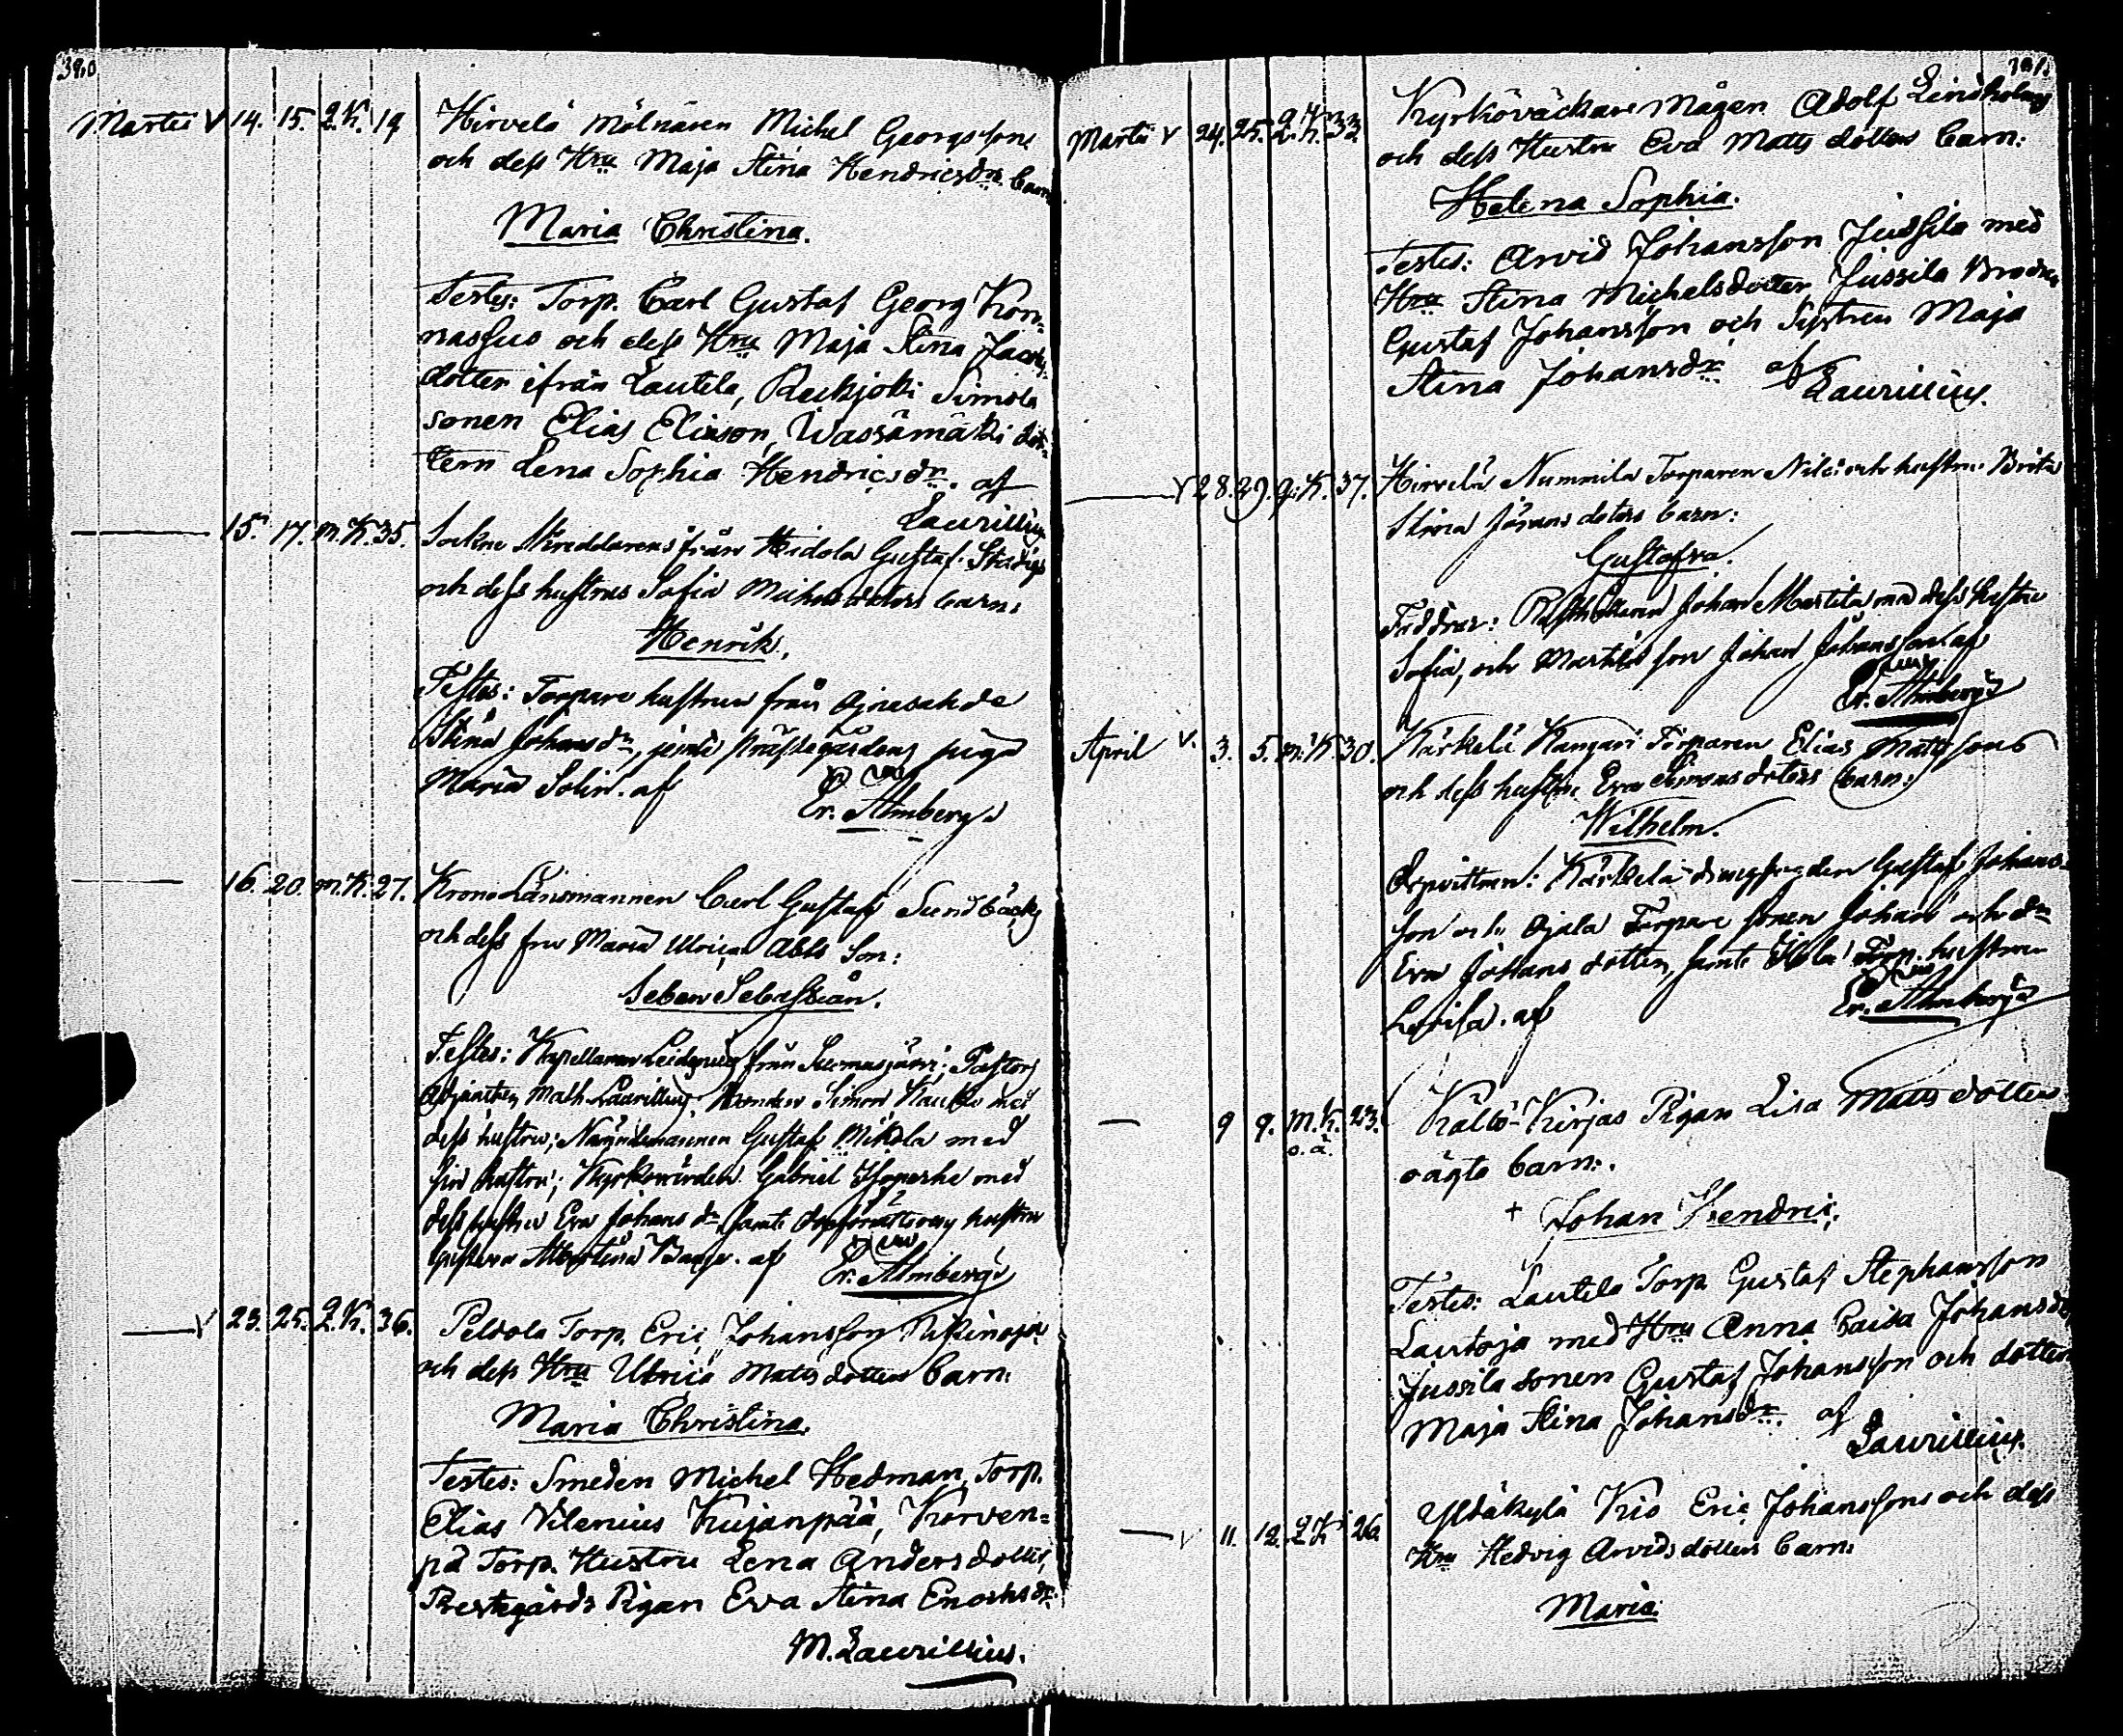 390
Martii V 14. 15. Q.K. 19 Hirvelä Mölnären Michel Georgssons
och dess Hru Maja Stina Hendricsdrs barn
Maria Christina.
Testes: Torp. Carl Gustaf Georg Kon-
nassius och dess Hru Maja Stina Jacobs-
dotter ifrån Lautela, Reckjoki Simola
sonen Elias Eliason, Wassämäki dot-
tern Lena Sophia Hendricsdr. af
Laurillius
15. 17. m.K. 35. Sockne Skreddarens från Heidola Gustaf
och dess hustrus Sofia Michelsdotters barn:
Henrik.
Testes: Torpare hustrun från
Stina Johansdr, jemte prästegårdens piga
Maria Solin. af
Er. Almberg
16. 20. m.K. 27. Krono Länsmannen Carl Gustaf Sundbäcks
och dess fru Maria Ulricas Abls Son:
Seben Sebastian.
Testes: Kapellanen från Suomusjärvi; Pastors
Adjuncten Math. Laurillius, Bonden Simon med
dess hustru; Nämndemannen Gustaf Mikola med
sin hustru; Kyrkovärden Gabriel med
dess hustru Eva Johansdr samt hustru
Gustava Albertina af Er. Almberg
V 23. 25. Q.K. 36. Peldola Torp. Eric Johansson
och dess Hru Ulrica Matts dotters barn:
Maria Christina.
Testes: Smeden Michel Hedman, Torp.
Elias Vilenius Kujanpää, Korven-
pä Torp. Hustru Lena Andersdotter,
Prestegårds Pigan Eva Stina Enochsdr.
M. Laurillius.
391.
Martii V 24. 25. Q.K. 33 Kyrkoväckare Mågen Adolf Lindholms
och dess Hustru Eva Matts dotters barn:
Helena Sophia.
Testes: Arvid Johansson Jussila med
Hru Stina Michelsdotter Jussila Brodren
Gustaf Johansson och Systren Maja
Stina Johansdr. af
Laurillius.
V 28. 29. q.K. 37. Hirvelä Nummila Torparen Nils och hustru Brita
Stina Jörans doters barn:
Gustafva.
Faddrar: Johan Martila med dess hustru
Sofia, och Martila son Johan Johansson af
Er. Almberg
April V. 3. 5. m.K. 30. Kärkelä Kangari Torparen Elias Mattssons
och dess hustru Eva Simons doters barn:
Wilhelm.
Dopvittnen: Kärkelä Gustaf Johans-
son och Ojala Torpare sonen Johan och dn
Eva Johans dotter, samt Torp. hustrun
Lovisa. af Er. Almberg
9 9. m.K. 23. Kältö-Kirjas Pigan Lisa Matts dotters
o.ä.
oägte barn:
+ Johan Hendric.
Testes: Lautela Torp Gustaf Stephansson
Lautoja med Hru Anna Caisa Johansdr
Jussila sonen Gustaf Johansson och dotter
Maja Stina Johansdr. af
Laurillius.
V 11. 12. Q.K. 26. Yldäkylä Kio Eric Johanssons och dess
Hru Hedvig Arvidsdotters barn:
Maria.